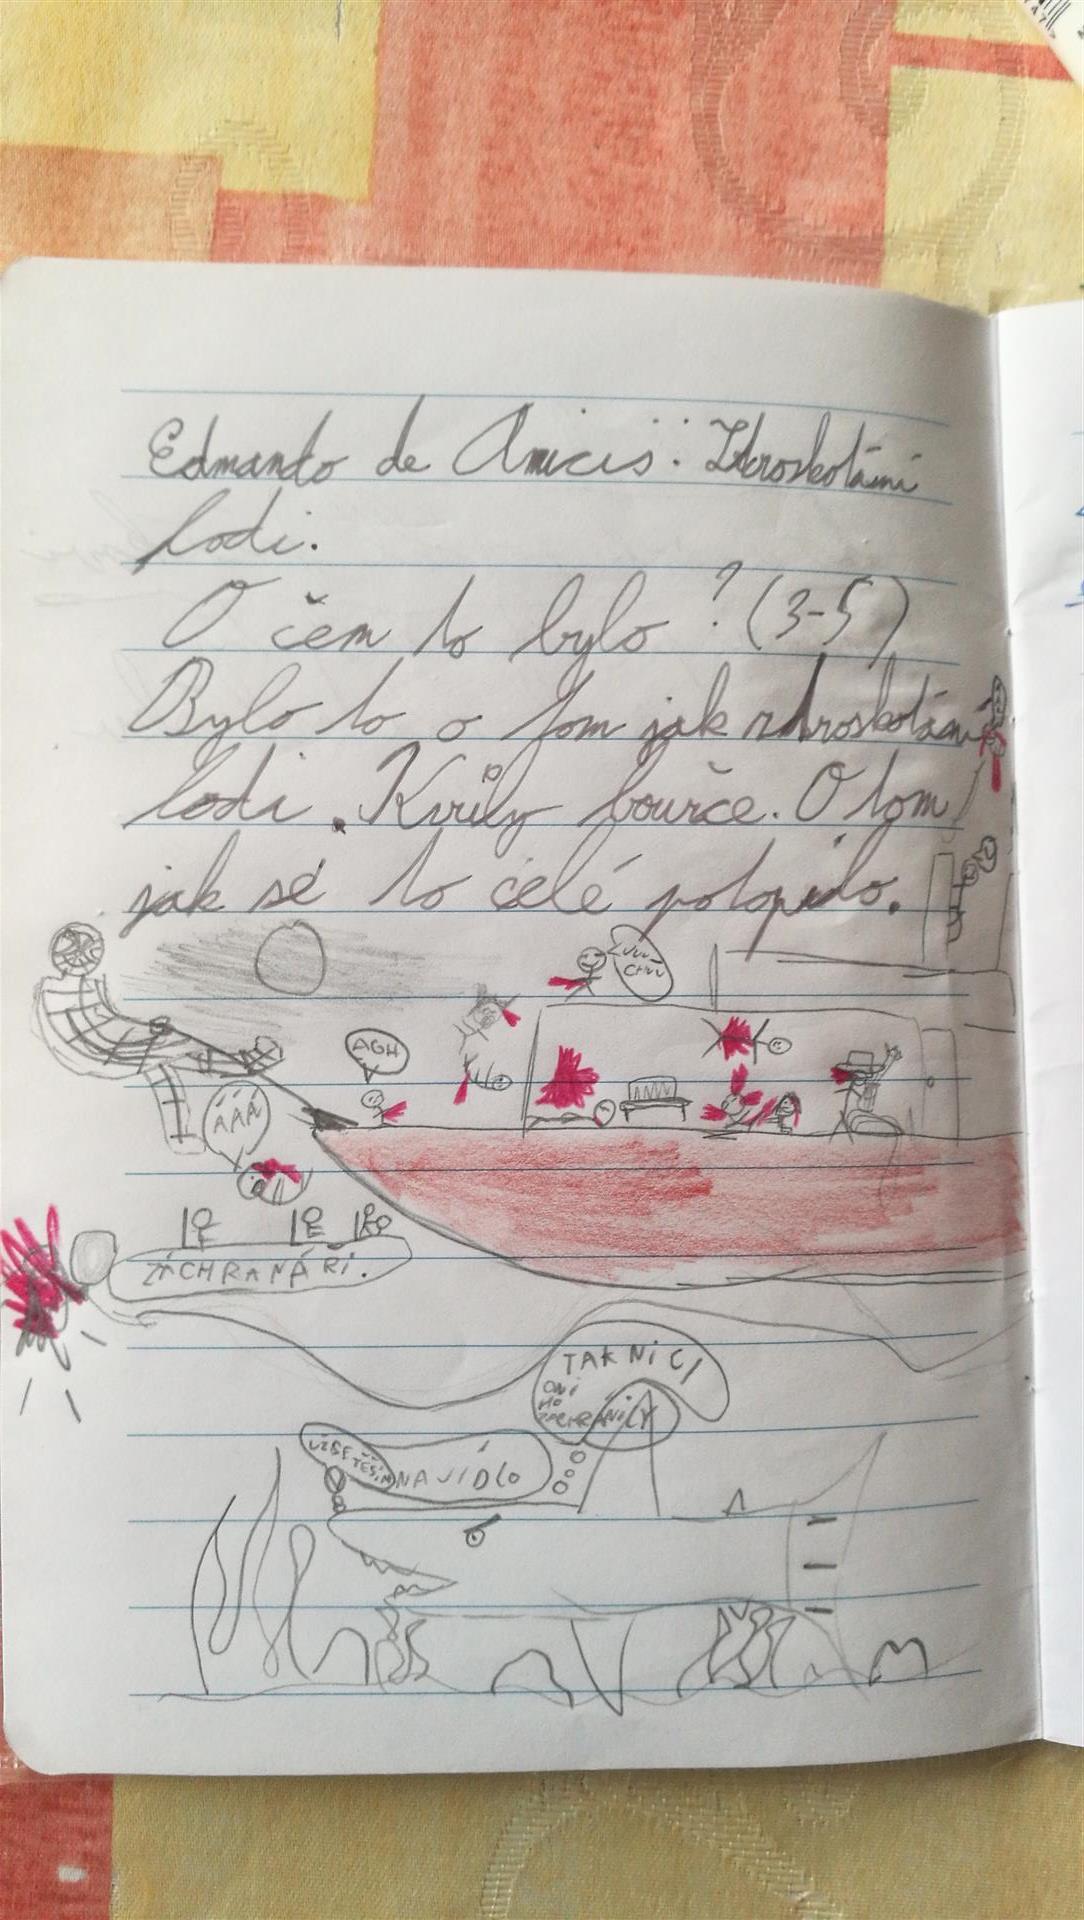 Edmando de Amicis: Ztroskotání
lodi.
O čem to bylo? (3-5)
Bylo to o tom jak ztroskotání
lodi. Kvůly bouřce. O tom
jak se to celé potopilo.
AGH
ÁÁÁ
ZÁCHRANÁŘI.
TAK NIC!
ONI
HO
ZACHRÁNILY
UŽ SE TĚŠÍM
NA JÍDLO